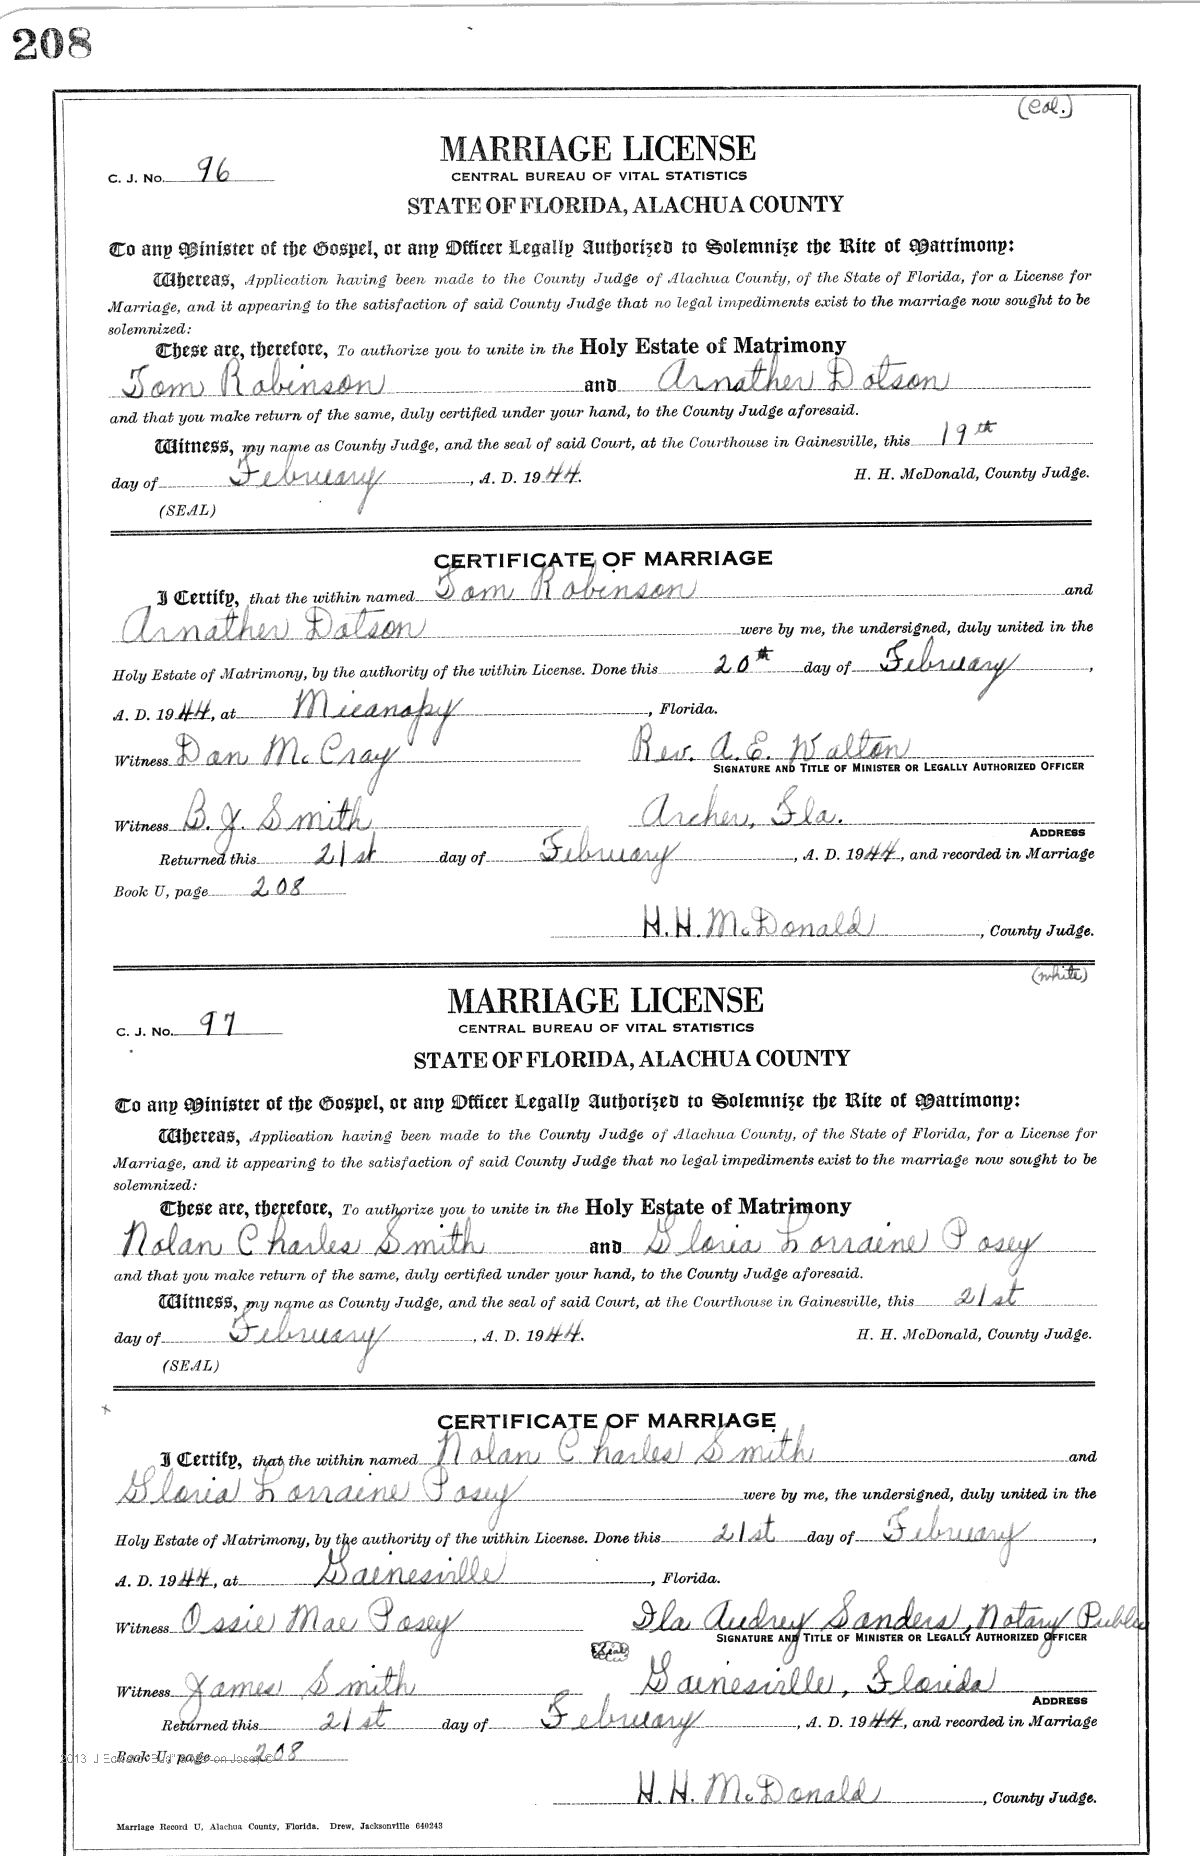 208
(Col.)
MARRIAGE LICENSE
C. J. No. 96
CENTRAL BUREAU OF VITAL STATISTICS
STATE OF FLORIDA, ALACHUA COUNTY
To any Minister of the Gospel, or any Officer Legally Authorized to Solemnize the Rite of Matrimony:
Whereas, Application having been made to the County Judge of Alachua County, of the State of Florida, for a License for
Marriage, and it appearing to the satisfaction of said County Judge that no legal impediments exist to the marriage now sought to be
solemnized:
These are, therefore, To authorize you to unite in the Holy Estate of Matrimony
Tom Robinson and Arnather Dotson
and that you make return of the same, duly certified under your hand, to the County Judge aforesaid.
Witness, my name as County Judge, and the seal of said Court, at the Courthouse in Gainesville, this 19th
day of February, A. D. 1944. H. H. McDonald, County Judge.
(SEAL)
CERTIFICATE OF MARRIAGE
I Certify, that the within named Tom Robinson and
Arnather Dotson were by me, the undersigned, duly united in the
Holy Estate of Matrimony, by the authority of the within License. Done this 20th day of February,
A. D. 1944, at Micanopy, Florida.
Witness Dan McCray Rev. A. E. Walton
SIGNATURE AND TITLE OF MINISTER OR LEGALLY AUTHORIZED OFFICER
Witness B. J. Smith Archer, Fla.
ADDRESS
Returned this 21st day of February, A. D. 1944, and recorded in Marriage
Book U, page 208
H. H. McDonald, County Judge.
(white)
MARRIAGE LICENSE
C. J. No. 97
CENTRAL BUREAU OF VITAL STATISTICS
STATE OF FLORIDA, ALACHUA COUNTY
To any Minister of the Gospel, or any Officer Legally Authorized to Solemnize the Rite of Matrimony:
Whereas, Application having been made to the County Judge of Alachua County, of the State of Florida, for a License for
Marriage, and it appearing to the satisfaction of said County Judge that no legal impediments exist to the marriage now sought to be
solemnized:
These are, therefore, To authorize you to unite in the Holy Estate of Matrimony
Nolan Charles Smith and Gloria Lorraine Posey
and that you make return of the same, duly certified under your hand, to the County Judge aforesaid.
Witness, my name as County Judge, and the seal of said Court, at the Courthouse in Gainesville, this 21st
day of February, A. D. 1944. H. H. McDonald, County Judge.
(SEAL)
CERTIFICATE OF MARRIAGE
I Certify, that the within named Nolan Charles Smith and
Gloria Lorraine Posey were by me, the undersigned, duly united in the
Holy Estate of Matrimony, by the authority of the within License. Done this 21st day of February,
A. D. 1944, at Gainesville, Florida.
Witness Ossie Mae Posey Ila Audrey Sanders, Notary Public
SIGNATURE AND TITLE OF MINISTER OR LEGALLY AUTHORIZED OFFICER
Seal
Witness James Smith Gainesville, Florida
ADDRESS
Returned this 21st day of February, A. D. 1944, and recorded in Marriage
Book U, page 208
2013 J Edward
H. H. McDonald, County Judge.
Marriage Record U, Alachua County, Florida. Drew, Jacksonville 640243